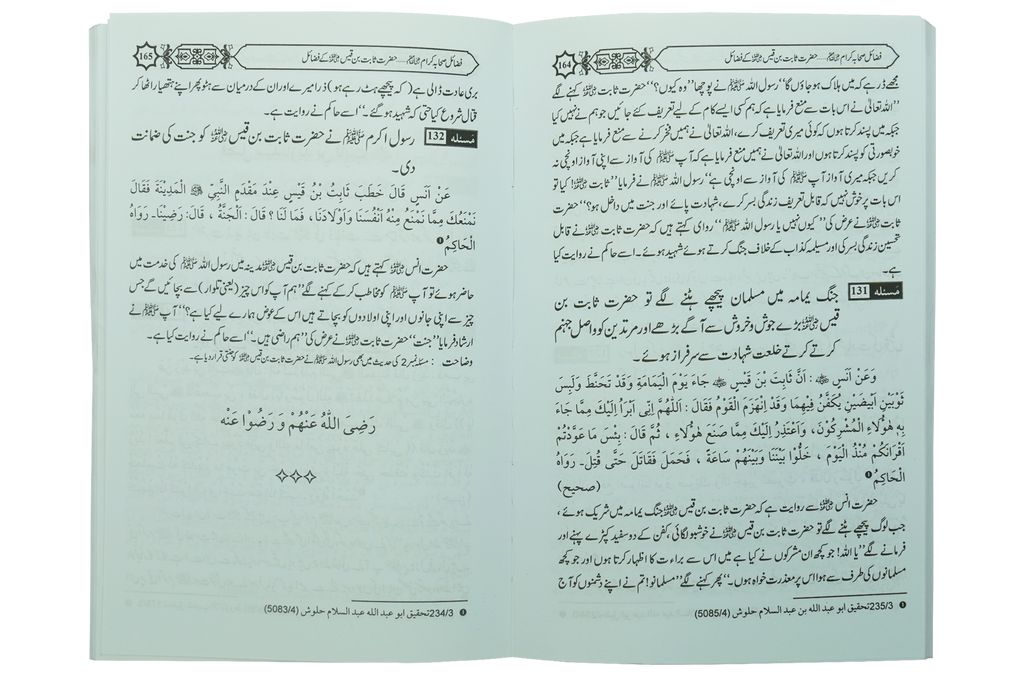 فضائل صحابہ کرام ﷢ ..... حضرت ثابت بن قیس ﷜ کے فضائل
164
مجھے ڈر ہے کہ میں ہلاک ہو جاؤں گا‘‘ رسول اللہ ﷺ نے پوچھا ’’وہ کیوں؟‘‘ حضرت ثابت ﷜ کہنے لگے
’’اللہ تعالیٰ نے اس بات سے منع فرمایا ہے کہ ہم کسی ایسے کام کے لیے تعریف کئے جائیں جو ہم نے نہیں کیا
جبکہ میں پسند کرتا ہوں کہ کوئی میری تعریف کرے، اللہ تعالیٰ نے ہمیں فخر کرنے سے منع فرمایا ہے جبکہ میں
خوبصورتی کو پسند کرتا ہوں اور اللہ تعالیٰ نے ہمیں منع فرمایا ہے کہ آپ ﷺ کی آواز سے اپنی آواز اونچی نہ
کریں جبکہ میری آواز آپ ﷺ کی آواز سے اونچی ہے‘‘ رسول اللہ ﷺ نے فرمایا ’’ثابت ﷜! کیا تو
اس بات پر خوش نہیں کہ قابل تعریف زندگی بسر کرے، شہادت پائے اور جنت میں داخل ہو؟‘‘ حضرت
ثابت ﷜ نے عرض کی ’’کیوں نہیں یا رسول اللہ ﷺ‘‘ راوی کہتے ہیں کہ حضرت ثابت ﷜ نے قابل
تحسین زندگی بسر کی اور مسیلمہ کذاب کے خلاف جنگ کرتے ہوئے شہید ہوئے۔ اسے حاکم نے روایت کیا
ہے۔
مسئلہ 131 جنگ یمامہ میں مسلمان پیچھے ہٹنے لگے تو حضرت ثابت بن
قیس ﷜ بڑے جوش و خروش سے آگے بڑھے اور مرتدین کو واصل جہنم
کرتے کرتے خلعت شہادت سے سرفراز ہوئے۔
وَعَنْ اَنَسٍ ﷜ : اَنَّ ثَابِتَ بْنَ قَيْسٍ ﷜ جَاءَ يَوْمَ الْيَمَامَةِ وَقَدْ تَحَنَّطَ وَلَبِسَ
ثَوْبَيْنِ اَبْيَضَيْنِ يُكَفَّنُ فِيْهِمَا وَقَدْ اِنْهَزَمَ الْقَوْمُ فَقَالَ : اَللّٰهُمَّ اِنِّى اَبْرَأُ اِلَيْكَ مِمَّا جَاءَ
بِهٖ هٰؤُلَاءِ الْمُشْرِكُوْنَ ، وَاَعْتَذِرُ اِلَيْكَ مِمَّا صَنَعَ هٰؤُلَاءِ ، ثُمَّ قَالَ : بِئْسَ مَا عَوَّدْتُمْ
اَقْرَانَكُمْ مُنْذُ الْيَوْمَ ، خَلُّوْا بَيْنَنَا وَبَيْنَهُمْ سَاعَةً ، فَحَمَلَ فَقَاتَلَ حَتّٰى قُتِلَ۔ رَوَاهُ
الْحَاكِمُ ❶ (صحيح)
حضرت انس ﷜ سے روایت ہے کہ حضرت ثابت بن قیس ﷜ جنگ یمامہ میں شریک ہوئے،
جب لوگ پیچھے ہٹنے لگے تو حضرت ثابت بن قیس ﷜ نے خوشبو لگائی، کفن کے دو سفید کپڑے پہنے اور
فرمانے لگے ’’یا اللہ! جو کچھ ان مشرکوں نے کیا ہے میں اس سے براءت کا اظہار کرتا ہوں اور جو کچھ
مسلمانوں کی طرف سے ہوا اس پر معذرت خواہ ہوں۔‘‘ پھر کہنے لگے ’’مسلمانو! تم نے اپنے دشمنوں کو آج
❶ 235/3 تحقیق ابو عبد الله بن عبد السلام حلوش (5085/4)
فضائل صحابہ کرام ﷢ ..... حضرت ثابت بن قیس ﷜ کے فضائل
165
بری عادت ڈالی ہے (کہ پیچھے ہٹ رہے ہو) ذرا میرے اور ان کے درمیان سے ہٹو پھر اپنے ہتھیار اٹھا کر
قتال شروع کیا حتی کہ شہید ہو گئے۔‘‘ اسے حاکم نے روایت ہے۔
مسئلہ 132 رسول اکرم ﷺ نے حضرت ثابت بن قیس ﷜ کو جنت کی ضمانت
دی۔
عَنْ اَنَسٍ قَالَ خَطَبَ ثَابِتُ بْنُ قَيْسٍ عِنْدَ مَقْدَمِ النَّبِيِّ ﷺ الْمَدِيْنَةَ فَقَالَ
نَمْنَعُكَ مِمَّا نَمْنَعُ مِنْهُ اَنْفُسَنَا وَاَوْلَادَنَا ، فَمَا لَنَا ؟ قَالَ : اَلْجَنَّةُ ، قَالَ : رَضِيْنَا۔ رَوَاهُ
الْحَاكِمُ ❶
حضرت انس ﷜ کہتے ہیں کہ حضرت ثابت بن قیس ﷜ مدینہ میں رسول اللہ ﷺ کی خدمت میں
حاضر ہوئے تو آپ ﷺ کو مخاطب کر کے کہنے لگے ’’ہم آپ کو اس چیز (یعنی تلوار) سے بچائیں گے جس
چیز سے اپنی جانوں اور اپنی اولادوں کو بچاتے ہیں اس کے عوض ہمارے لیے کیا ہے؟‘‘ آپ ﷺ نے
ارشاد فرمایا ’’جنت‘‘ حضرت ثابت ﷜ نے عرض کی ’’ہم راضی ہیں۔‘‘ اسے حاکم نے روایت کیا ہے۔
وضاحت : مسئلہ نمبر 2 کی حدیث میں بھی رسول اللہ ﷺ نے حضرت ثابت بن قیس ﷜ کو جنتی قرار دیا ہے۔
رَضِىَ اللّٰهُ عَنْهُمْ وَ رَضُوْا عَنْه
❶ 234/3 تحقیق ابو عبد الله عبد السلام حلوش (5083/4)